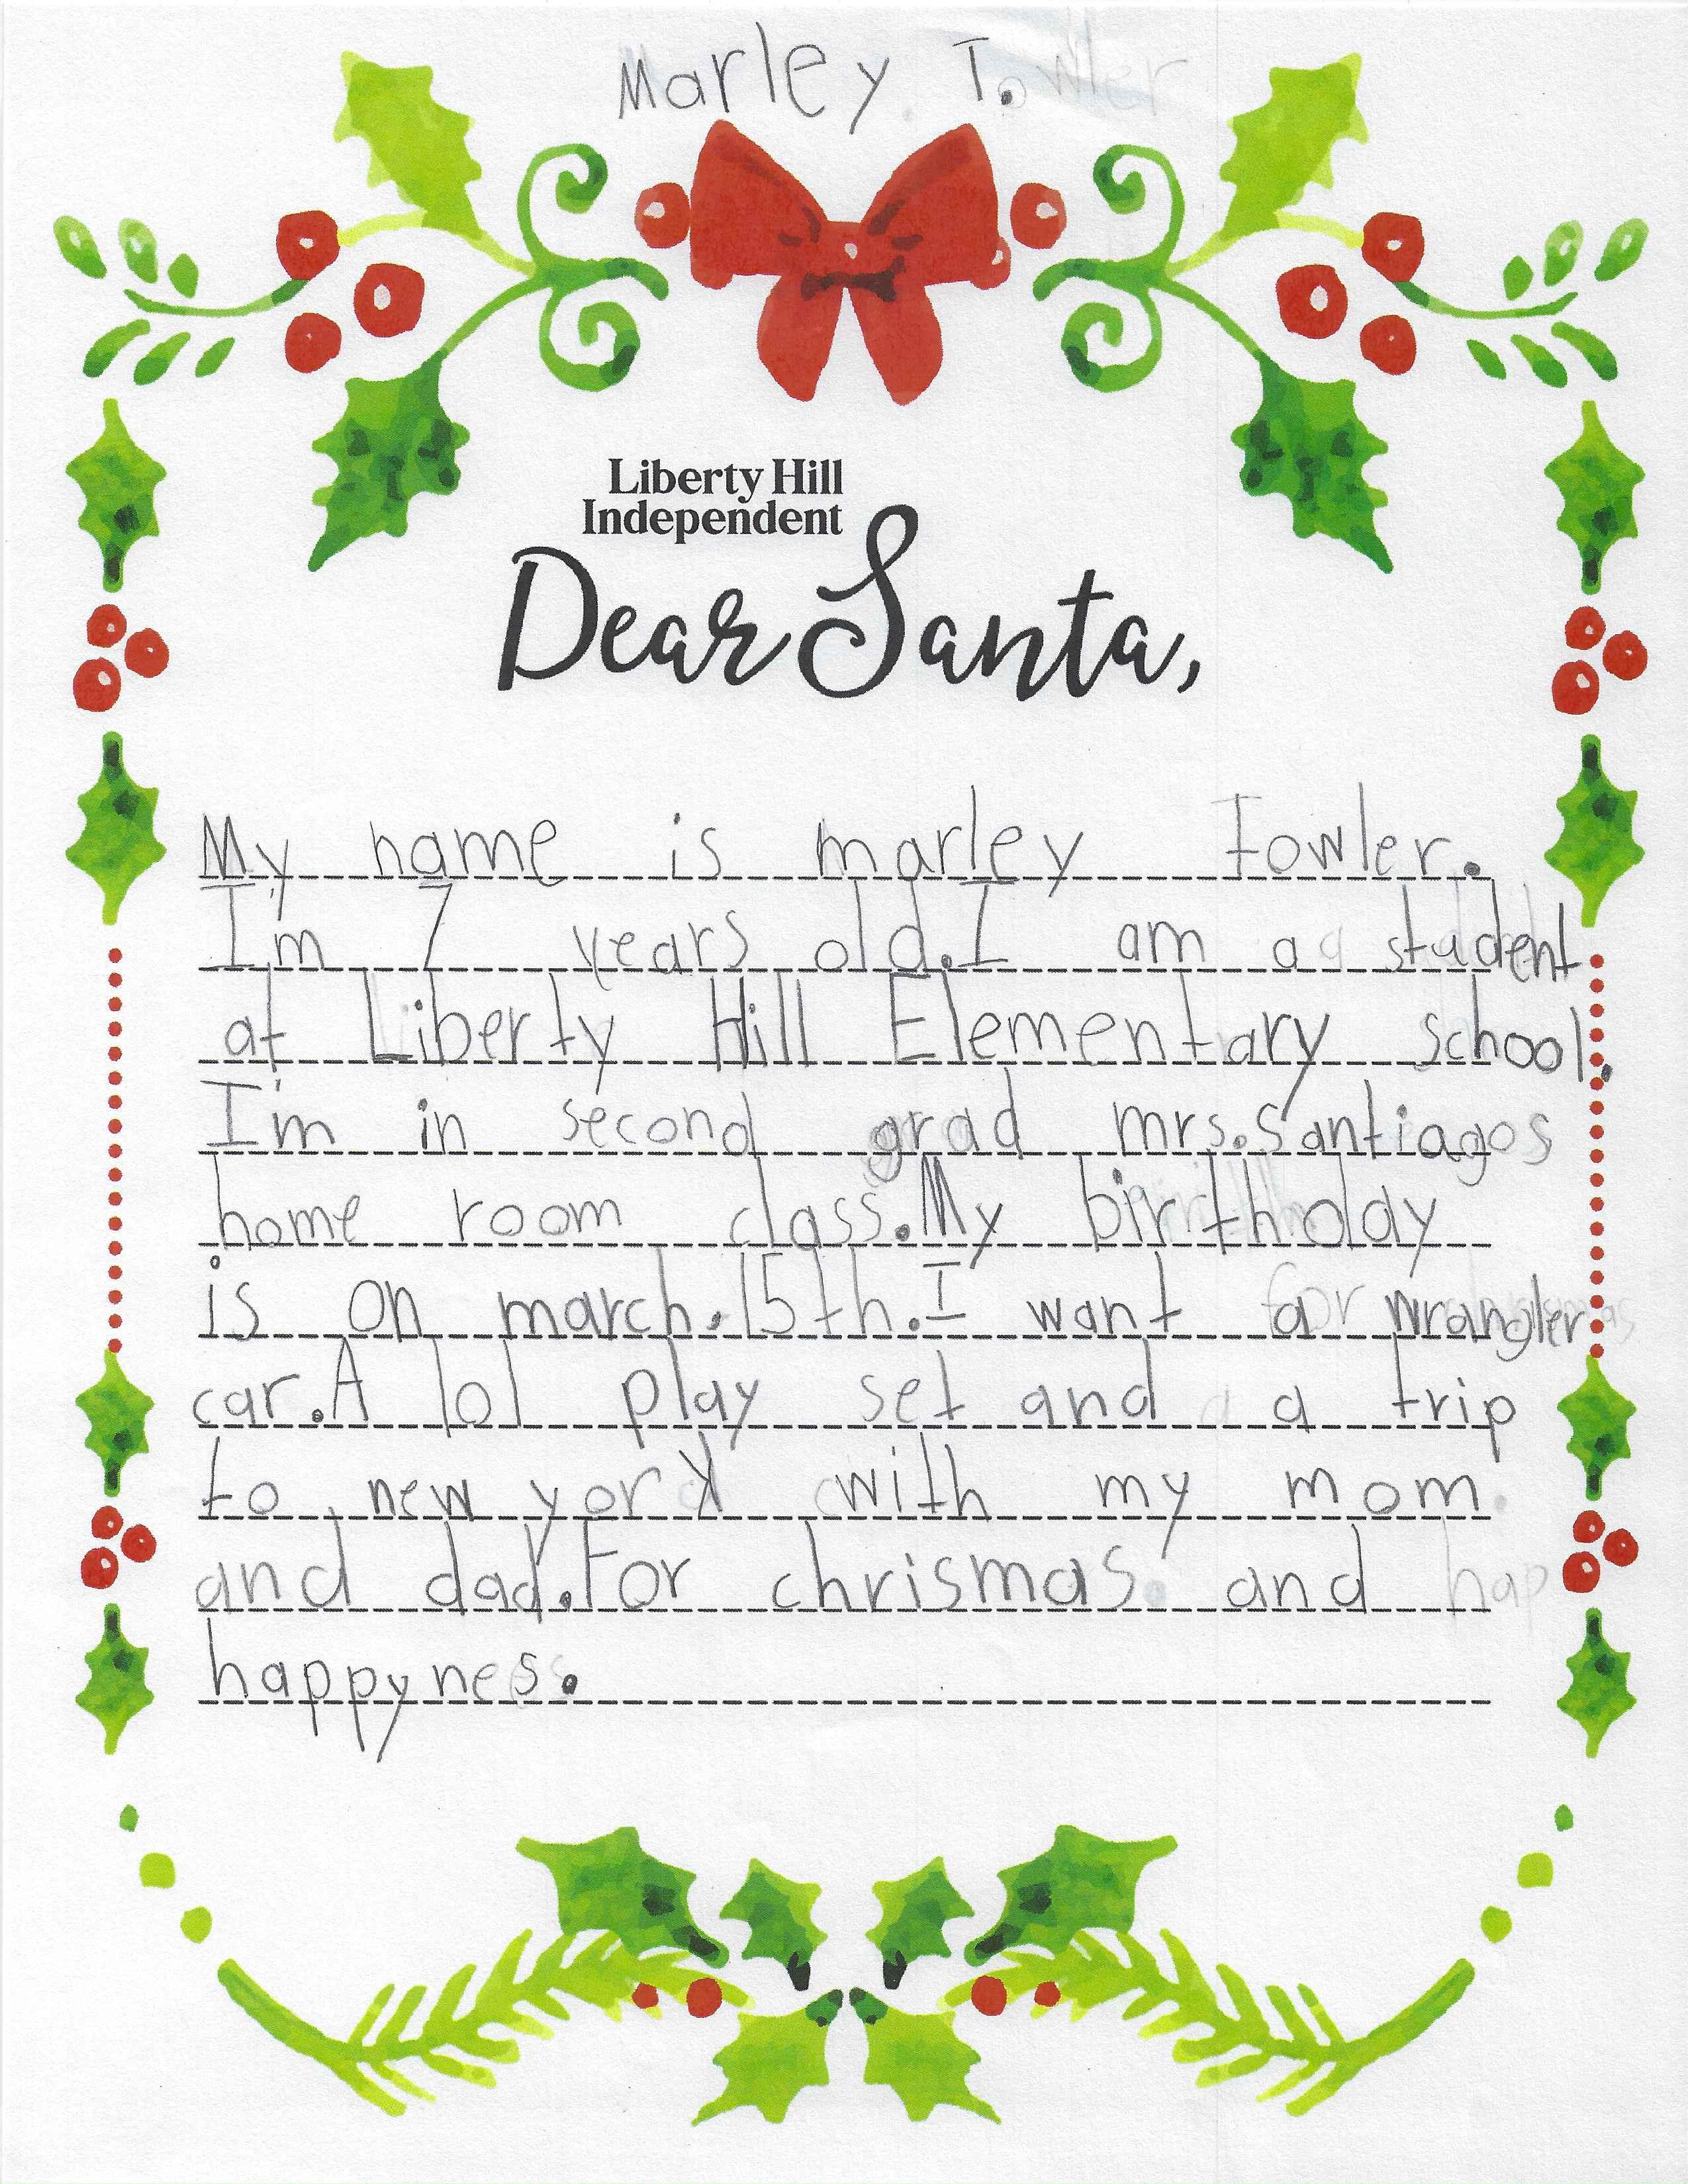 Marley T.
Liberty Hill
Independent
Dear Santa,
My name is marley Fowler.
I'm 7 years old.I am a student
at Liberty Hill Elementary school.
I'm in second grad mrs.Santiagos
home room class.My birthday
is on march.15th.I want a wrangler
car.A lol play set and a trip
to new york with my mom
and dad.For chrismas and
happynes.